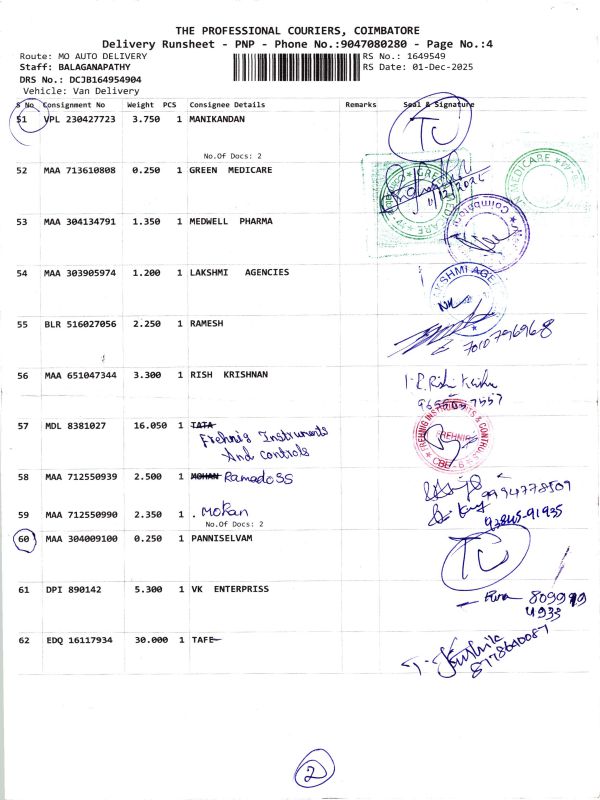 THE PROFESSIONAL COURIERS, COIMBATORE
Delivery Runsheet - PNP - Phone No.:9047080280 - Page No.:4
Route: MO AUTO DELIVERY RS No.: 1649549
Staff: BALAGANAPATHY RS Date: 01-Dec-2025
DRS No.: DCJB164954904
Vehicle: Van Delivery
S No Consignment No Weight PCS Consignee Details Remarks Seal & Signature
51 VPL 230427723 3.750 1 MANIKANDAN TC
No.Of Docs: 2
52 MAA 713610808 0.250 1 GREEN MEDICARE
53 MAA 304134791 1.350 1 MEDWELL PHARMA
54 MAA 303905974 1.200 1 LAKSHMI AGENCIES
55 BLR 516027056 2.250 1 RAMESH
7010796968
56 MAA 651047344 3.300 1 RISH KRISHNAN
57 MDL 8381027 16.050 1 TATA
Frehnig Instruments
And controls
FREHNIG INSTRUMENTS & CONTROLS
58 MAA 712550939 2.500 1 MOHAN Ramadoss
9994778509
59 MAA 712550990 2.350 1 . Mohan
93845-91935
No.Of Docs: 2
60 MAA 304009100 0.250 1 PANNISELVAM TC
61 DPI 890142 5.300 1 VK ENTERPRISS
62 EDQ 16117934 30.000 1 TAFE
8778640087
2